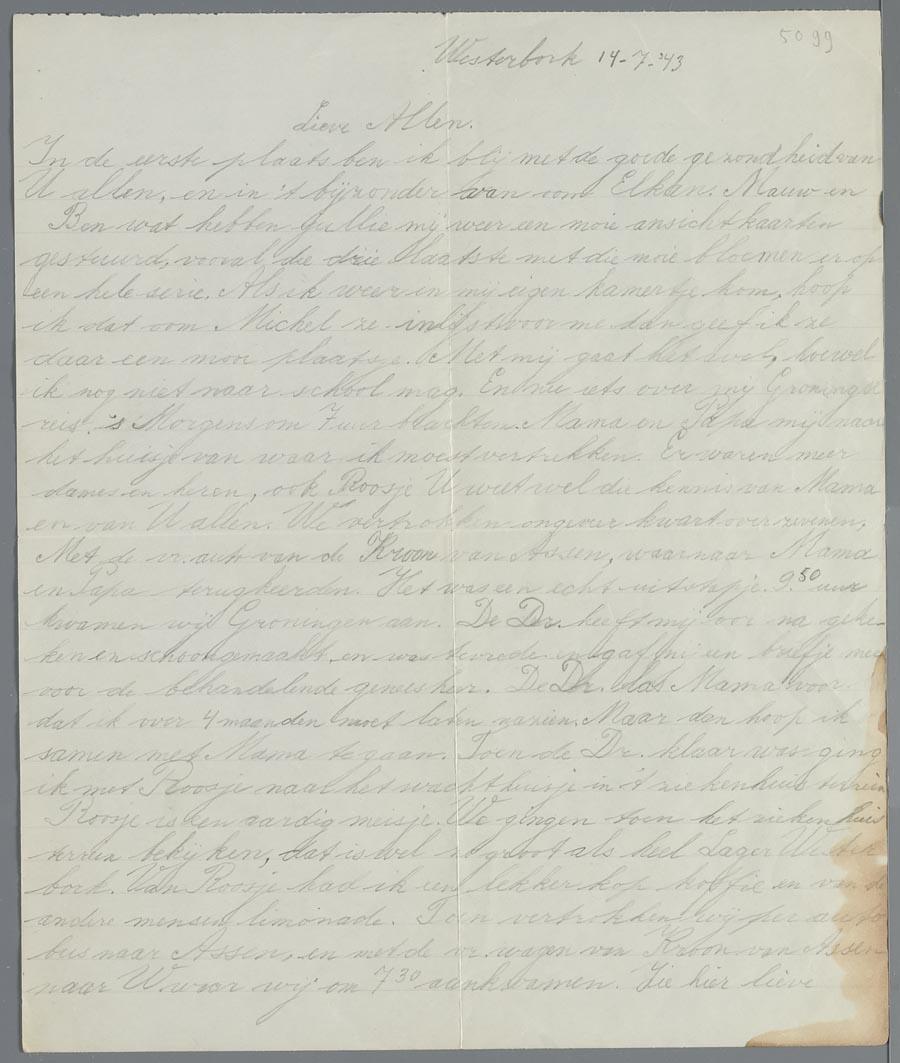 5099
Westerbork 14-7-'43
Lieve Allen.
In de eerste plaats ben ik blij met de goede gezondheid van
U allen, en in 't bijzonder van oom Elkan. Mauw en
Ben wat hebben jullie mij weer een moie ansichtkaarten
gestuurd, vooral die drie laatste met die moie bloemen er op
een hele serie. Als ik weer in mij eigen kamertje kom, hoop
ik dat oom Michel ze inlijst voor me dan geef ik ze
daar een mooi plaatsje. Met mij gaat het wel, hoewel
ik nog niet naar school mag. En nu iets over mij Groninger
reis. 's Morgens om 7 uur brachten Mama en Papa mij naar
het huisje van waar ik moest vertrekken. Er waren meer
dames en heren, ook Roosje U weet wel die kennis van Mama
en van U allen. We vertrokken ongeveer kwart over zevenen.
Met de vr. auto van de Kroon van Assen, waarnaar Mama
en Papa terugkeerden. Het was een echt uitstapje. 9.50 uur
kwamen wij Groningen aan. De Dr. heeft mij oor na geke-
ken en schoongemaakt, en was tevrede en gaf mij een briefje mee
voor de behandelende geneesheer. De Dr. las Mama voor
dat ik over 4 maanden moet laten nazien. Maar dan hoop ik
samen met Mama te gaan. Toen de Dr. klaar was ging
ik met Roosje naar het wachthuisje in 't ziekenhuis terrein
Roosje is een aardig meisje. We gingen toen het zieken huis
terrein bekijken, dat is wel zo groot als heel Lager Wester
bork. Van Roosje had ik een lekker kop koffie en van de
andere mensen limonade. Toen vertrokken wij per auto
bus naar Assen, en met de vr. wagen van Kroon van Assen
naar W. waar wij om 7 30 aankwamen. Zie hier lieve